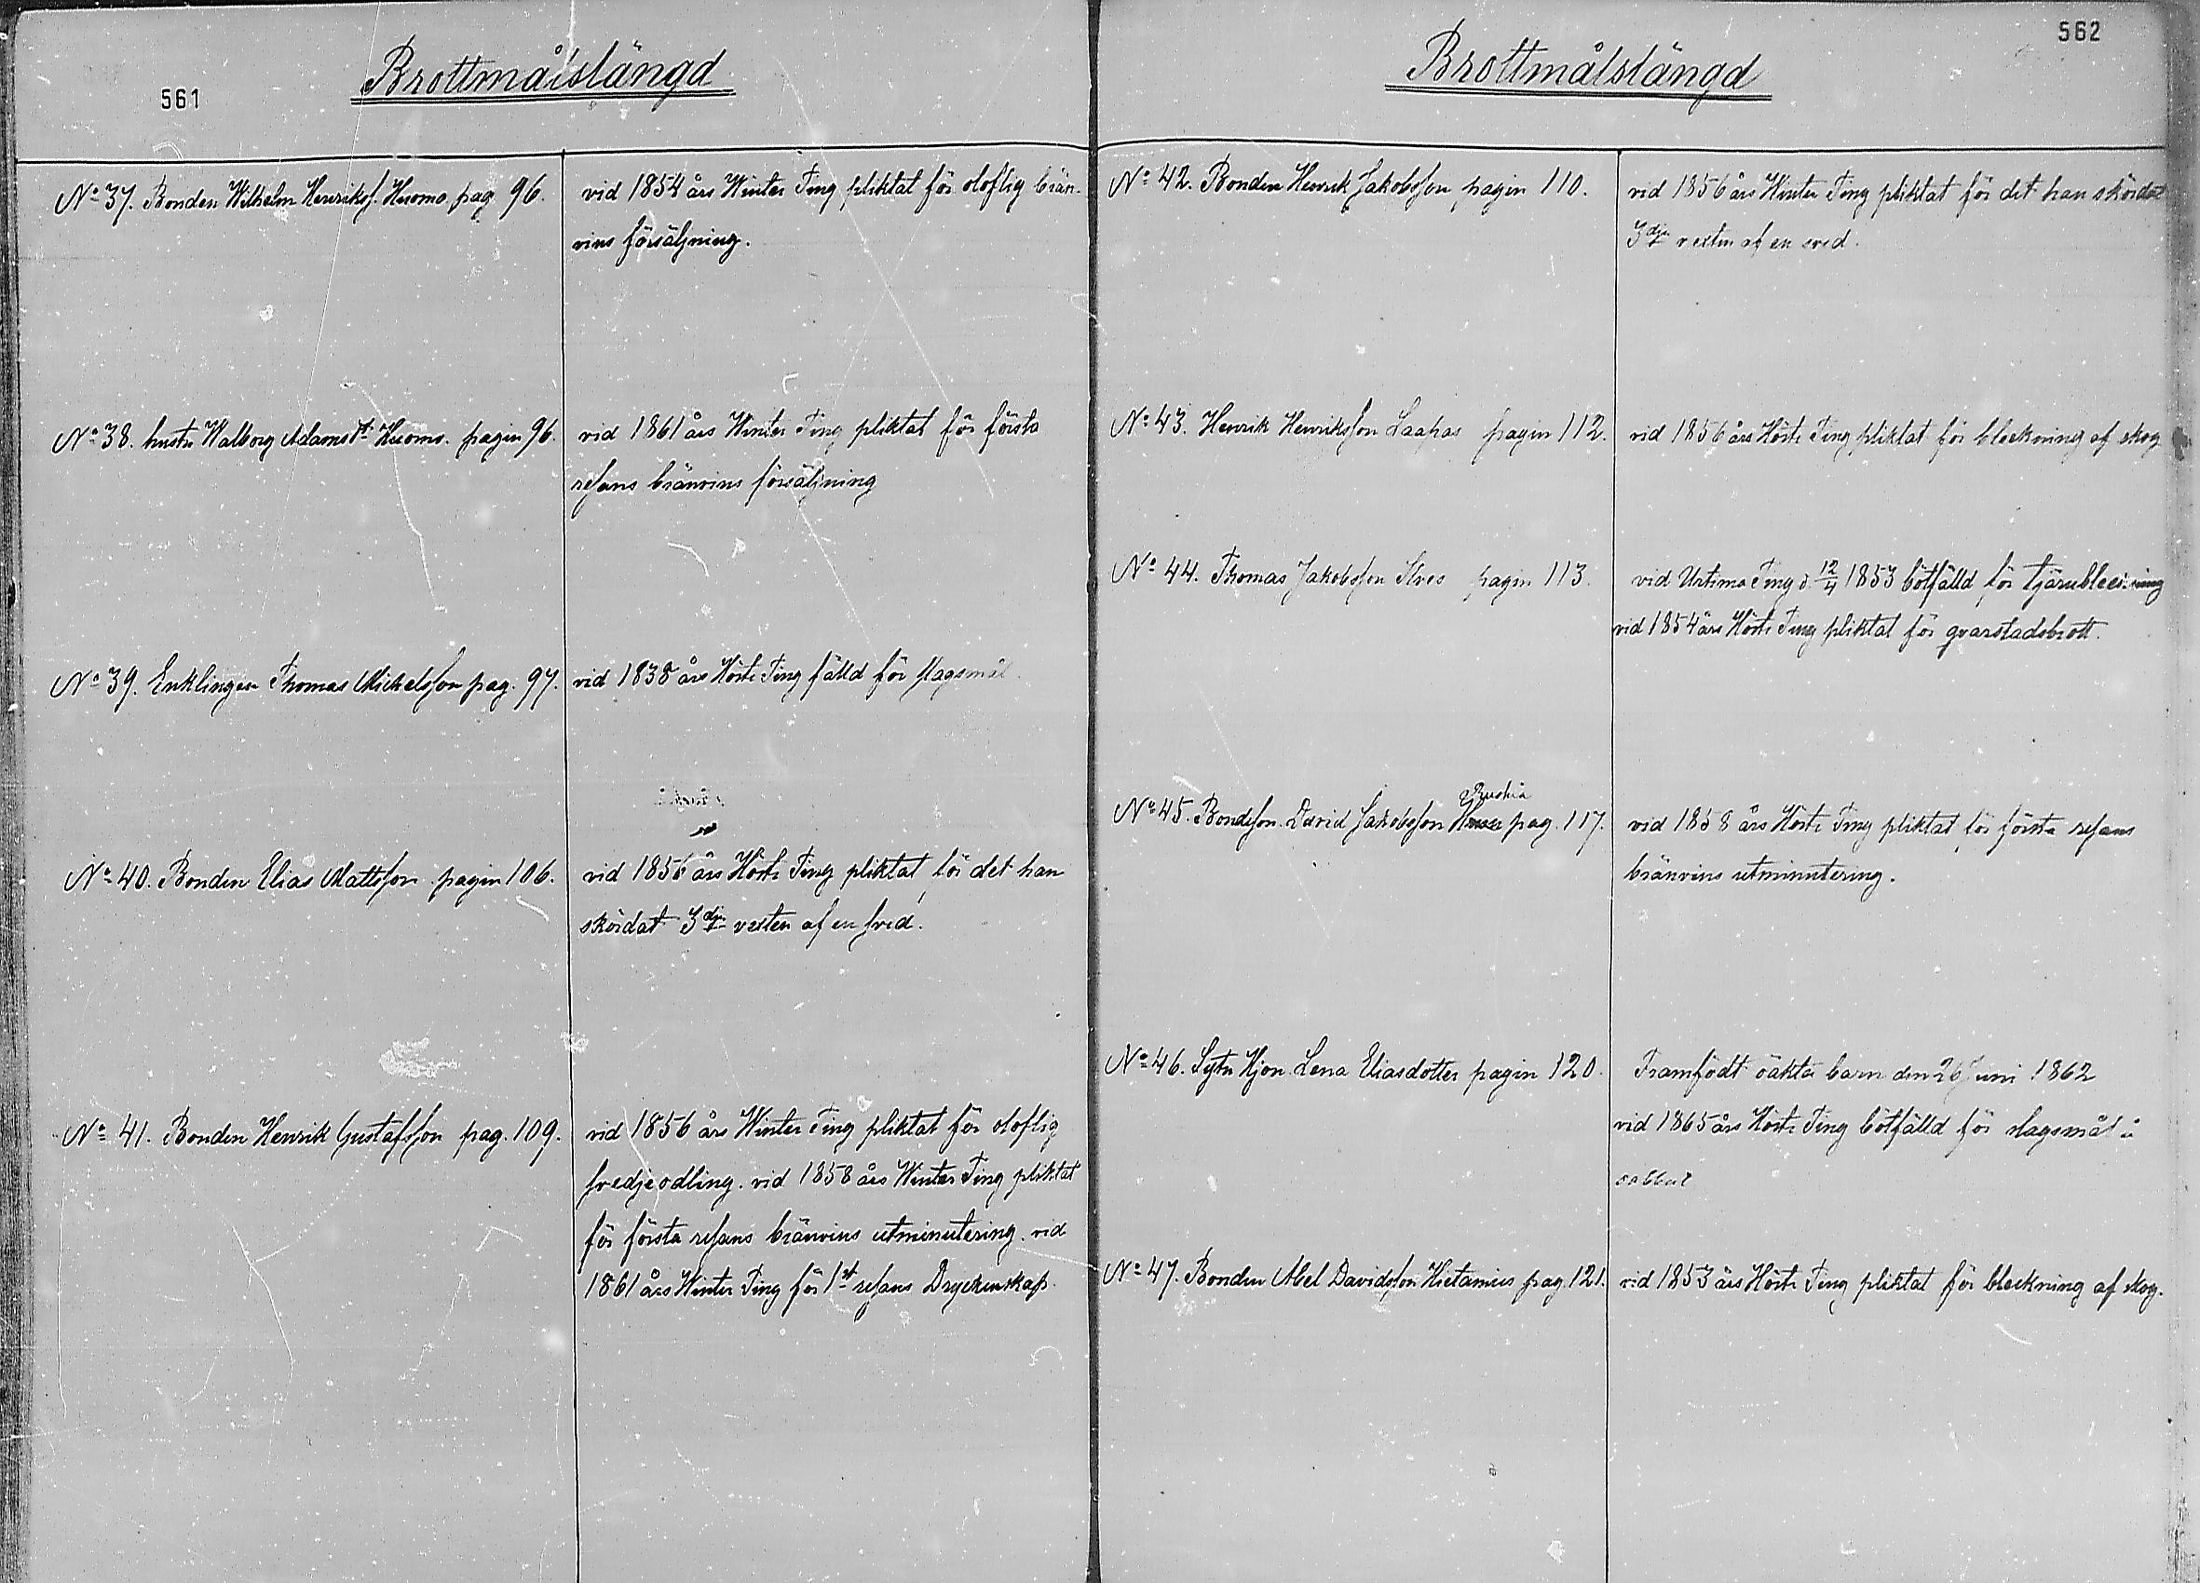 561
Brottmålslängd
No 37. Bonden Wilhelm Henriksf. Huomo pag 96.
vid 1854 års Winter Ting pliktat för oloflig brän-
vins försäljning.
No 38. hustru Walborg Adamsdr Huomo. pagin 96.
vid 1861 års Winter Ting pliktat för första
resans bränvins försäljning
No 39. Enklingen Thomas Michelsson pag. 97.
vid 1838 års Höste Ting fälld för slagsmål.
No 40. Bonden Elias Mattsson pagin 106.
vid 1856 års Höste Ting pliktat för det han
skördat 3dje vexten af en sved.
No 41. Bonden Henrik Gustafsson pag. 109.
vid 1856 års Winter Ting pliktat för oloflig
svedjeodling. vid 1858 års Winter Ting pliktat
för första resans bränvins utminutering. vid
1861 års Winter Ting för 1st resans Dryckenskap.
562
Brottmålslängd
No 42. Bonden Henrik Jakobsson pagin 110.
vid 1856 års Winter Ting pliktat för det han skördat
3dje vexten af en sved.
No 43. Henrik Henriksson Laapas pagin 112.
vid 1856 års Höste Ting pliktat för bleckning af skog
No 44. Thomas Jakobsson Ilves pagin 113.
vid Urtima Ting d. 12/4 1853 bötfälld för tjärubleckning
vid 1854 års Höste Ting pliktat för qvarstadsbrott.
No 45. Bondeson David Jakobsson Ruskia pag. 117.
vid 1858 års Höste Ting pliktat för första resans
bränvins utminutering.
No 46. Sytn Hjon Lena Eliasdotter pagin 120.
Framfödt oäkta barn den 26 Juni 1862
vid 1865 års Höste Ting bötfälld för slagsmål å
sabbat
No 47. Bonden Abel Davidsson Hietamies pag 121.
vid 1853 års Höste Ting pliktat för bleckning af skog.